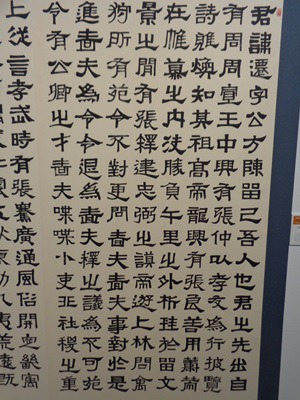 君諱遷字公方陳留己吾人也君之先出自
有周周宣王中興有張仲以孝友為行披覽
詩雅煥知其祖高帝龍興有張良善用籌策
在帷幕之內決勝負千里之外析珪於留文
景之間有張釋之建忠弼之謨帝遊上林問禽
狩所有苑令不對更問嗇夫嗇夫事對於是
進嗇夫為令令退為嗇夫釋之議為不可苑
令有公卿之才嗇夫喋喋小吏非社稷之重
上從言孝武時有張騫廣通風俗開定畿寓
五狄東勤九夷荒遠既